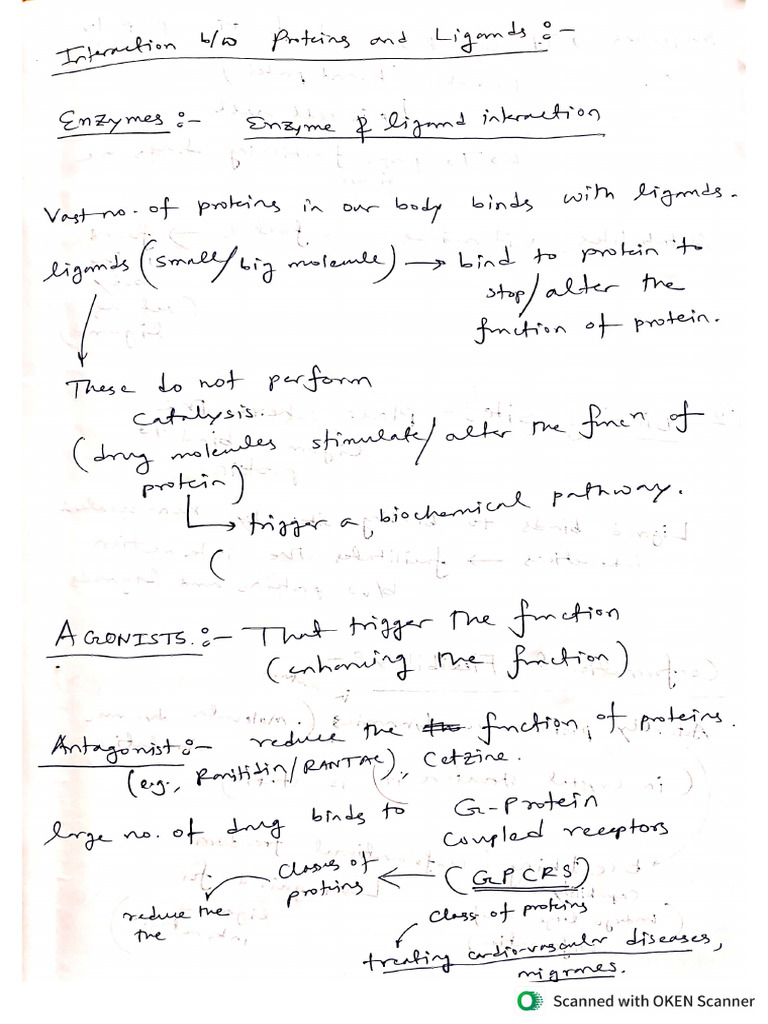 Interaction b/w Proteins and Ligands :-
Enzymes :- Enzyme & ligand interaction
Vast no. of proteins in our body binds with ligands.
ligands (small/big molecule) → bind to protein to
stop/alter the
function of protein.
These do not perform
catalysis.
(drug molecules stimulate/alter the funcn of
protein)
→ trigger a biochemical pathway.
(
AGONISTS :- That trigger the function
(enhancing the function)
Antagonist :- reduce the function of proteins.
(e.g., Ranitidin/RANTAC), Cetzine.
large no. of drug binds to G-Protein
coupled receptors
classes of
proteins ← (GPCRS)
reduce the
the
class of proteins
treating cardio-vascular diseases,
migranes.
Scanned with OKEN Scanner